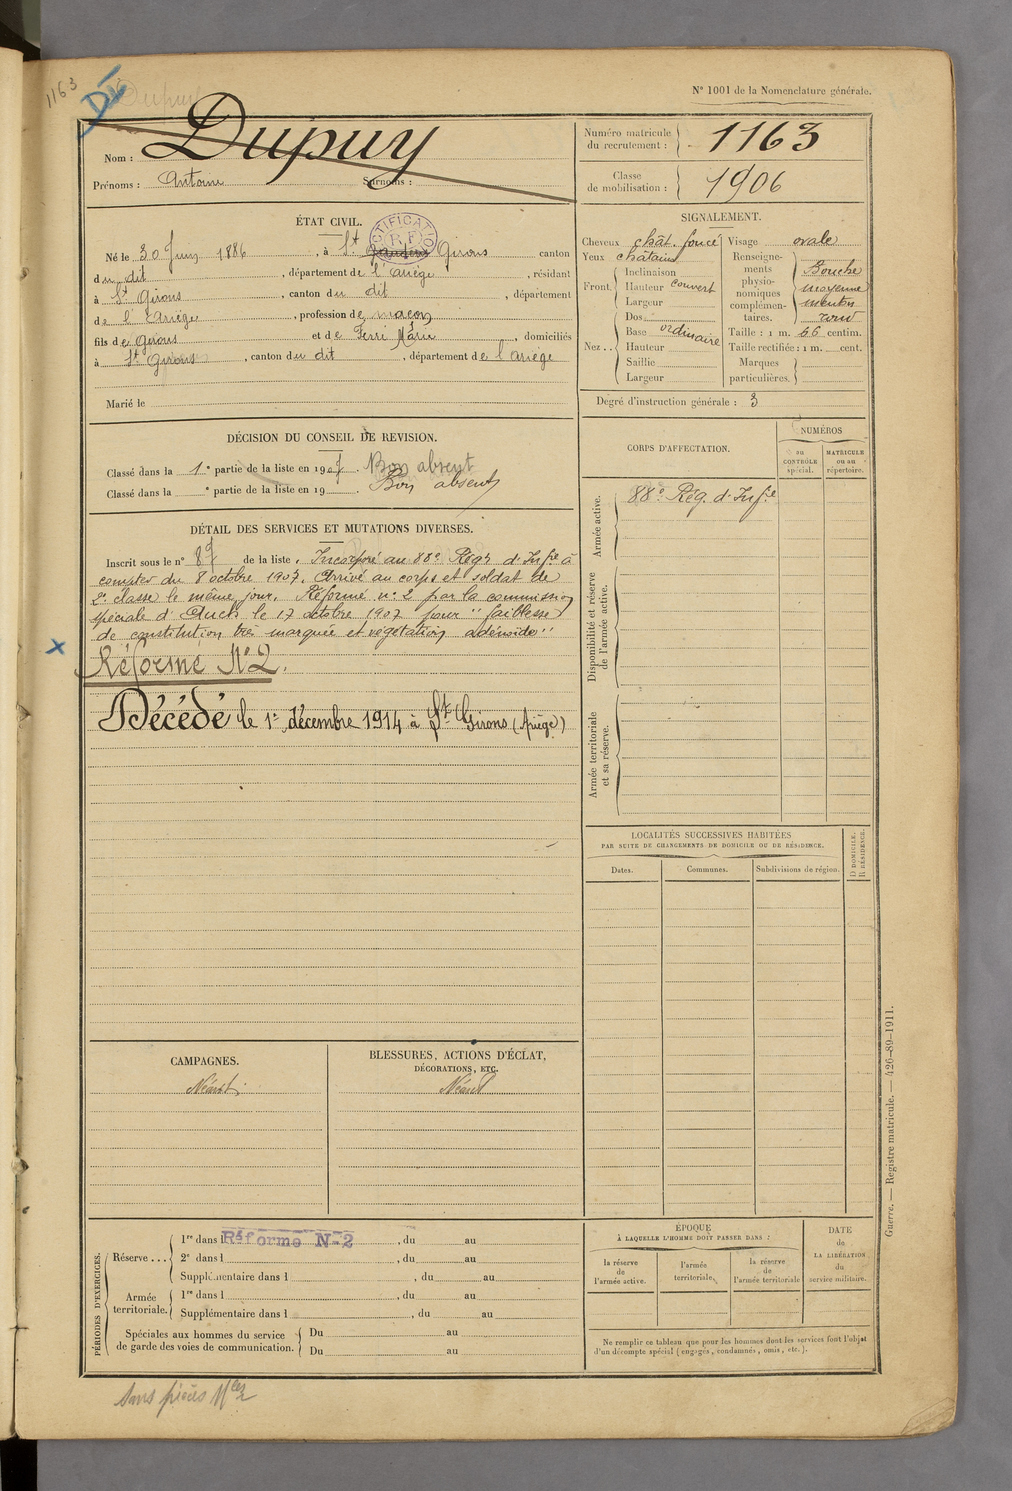 1163
Dcd
Dupuy
N° 1001 de la Nomenclature générale.
Nom : Dupuy
Prénoms : Antoine Surnoms :
Numéro matricule du recrutement : 1163
Classe de mobilisation : 1906
ÉTAT CIVIL.
Né le 30 Juin 1886, à St Gaudens Girons canton
du dit, département de l'Ariège, résidant
à St Girons, canton du dit, département
de l'Ariège, profession de maçon
fils de Girons et de Ferri Marie, domiciliés
à St Girons, canton du dit, département de l'Ariège
Marié le
RECTIFICATION
R F
SIGNALEMENT.
Cheveux chât. foncé
Yeux châtains
Front. Inclinaison
Hauteur couvert
Largeur
Nez.. Dos
Base ordinaire
Hauteur
Saillie
Largeur
Visage ovale
Renseignements physionomiques complémentaires. Bouche moyenne menton rond
Taille : 1 m. 66 centim.
Taille rectifiée : 1 m. cent.
Marques particulières.
Degré d'instruction générale : 3
DÉCISION DU CONSEIL DE REVISION.
Classé dans la 1e partie de la liste en 1907. Bon absent
Classé dans la e partie de la liste en 19 . Bon absent
DÉTAIL DES SERVICES ET MUTATIONS DIVERSES.
Inscrit sous le n° 87 de la liste. Incorporé au 88e Régt d'Infie à
compter du 8 octobre 1907. Arrivé au corps et soldat de
2e classe le même jour. Réformé n° 2 par la commission
spéciale d'Auch le 17 octobre 1907 pour "faiblesse
de constitution très marquée et végétation adénoïde"
x
Réformé N° 2.
Décédé le 1er décembre 1914 à St Girons (Ariège)
CORPS D'AFFECTATION.
NUMÉROS
au CONTRÔLE spécial.
MATRICULE ou au répertoire.
Armée active.
88e Rég. d'Infie
Disponibilité et réserve de l'armée active.
Armée territoriale et sa réserve.
LOCALITÉS SUCCESSIVES HABITÉES
PAR SUITE DE CHANGEMENTS DE DOMICILE OU DE RÉSIDENCE.
Dates.
Communes.
Subdivisions de région.
D DOMICILE.
R RÉSIDENCE.
CAMPAGNES.
Néant
BLESSURES, ACTIONS D'ÉCLAT,
DÉCORATIONS, ETC.
Néant
PÉRIODES D'EXERCICES.
Réserve ... 1re dans l , du au
Réformé N-2
2e dans l , du au
Supplémentaire dans l , du au
Armée territoriale. 1re dans l , du au
Supplémentaire dans l , du au
Spéciales aux hommes du service de garde des voies de communication. Du au
Du au
ÉPOQUE
À LAQUELLE L'HOMME DOIT PASSER DANS :
la réserve de l'armée active.
l'armée territoriale.
la réserve de l'armée territoriale
DATE de LA LIBÉRATION du service militaire.
Ne remplir ce tableau que pour les hommes dont les services font l'objet
d'un décompte spécial (engagés, condamnés, omis, etc.).
Guerre. — Registre matricule. — 426-89-1911.
Sans pièces Mles